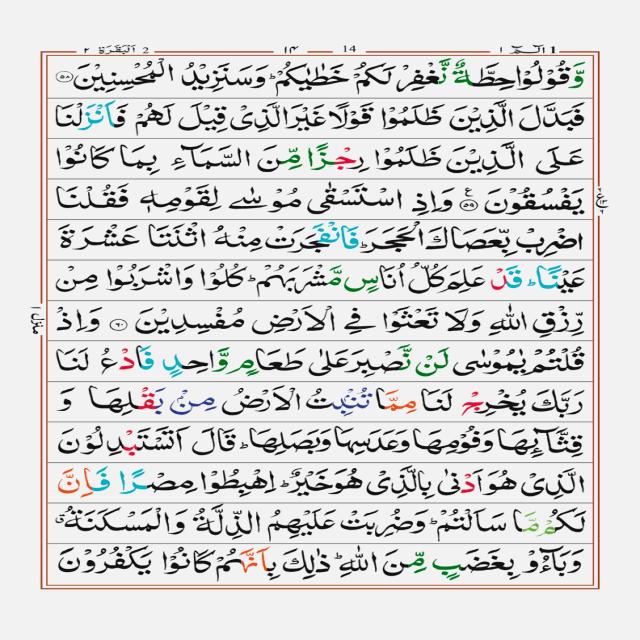 2 اَلْبَقَرَة ٢ 14 ١٤ 1 الٓمّٓ ١
وَّقُوْلُوْا حِطَّةٌ نَّغْفِرْ لَكُمْ خَطٰيٰكُمْ ؕ وَسَنَزِيْدُ الْمُحْسِنِيْنَ ۝٥٨
فَبَدَّلَ الَّذِيْنَ ظَلَمُوْا قَوْلًا غَيْرَ الَّذِيْ قِيْلَ لَهُمْ فَاَنْزَلْنَا
عَلَى الَّذِيْنَ ظَلَمُوْا رِجْزًا مِّنَ السَّمَآءِ بِمَا كَانُوْا
يَفْسُقُوْنَ ۝٥٩ ع وَاِذِ اسْتَسْقٰى مُوْسٰى لِقَوْمِهٖ فَقُلْنَا
اضْرِبْ بِّعَصَاكَ الْحَجَرَ ؕ فَانْفَجَرَتْ مِنْهُ اثْنَتَا عَشْرَةَ
عَيْنًا ؕ قَدْ عَلِمَ كُلُّ اُنَاسٍ مَّشْرَبَهُمْ ؕ كُلُوْا وَاشْرَبُوْا مِنْ
رِّزْقِ اللّٰهِ وَلَا تَعْثَوْا فِى الْاَرْضِ مُفْسِدِيْنَ ۝٦٠ وَاِذْ
قُلْتُمْ يٰمُوْسٰى لَنْ نَّصْبِرَ عَلٰى طَعَامٍ وَّاحِدٍ فَادْعُ لَنَا
رَبَّكَ يُخْرِجْ لَنَا مِمَّا تُنْۢبِتُ الْاَرْضُ مِنْۢ بَقْلِهَا وَ
قِثَّآئِهَا وَفُوْمِهَا وَعَدَسِهَا وَبَصَلِهَا ؕ قَالَ اَتَسْتَبْدِلُوْنَ
الَّذِيْ هُوَ اَدْنٰى بِالَّذِيْ هُوَ خَيْرٌ ؕ اِهْبِطُوْا مِصْرًا فَاِنَّ
لَكُمْ مَّا سَاَلْتُمْ ؕ وَضُرِبَتْ عَلَيْهِمُ الذِّلَّةُ وَالْمَسْكَنَةُ ۗ
وَبَآءُوْ بِغَضَبٍ مِّنَ اللّٰهِ ؕ ذٰلِكَ بِاَنَّهُمْ كَانُوْا يَكْفُرُوْنَ
منزل ١